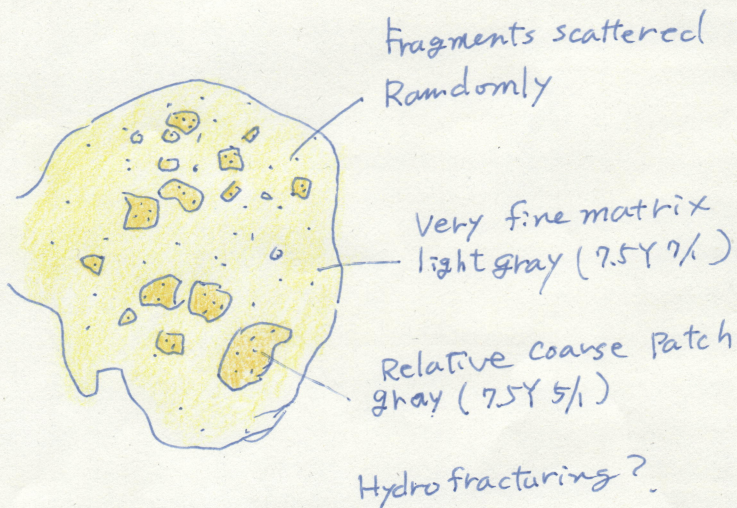 Fragments scattered
Ramdomly
Very fine matrix
light gray (7.5Y 7/1)
Relative coarse Patch
gray (7.5Y 5/1)
Hydrofracturing?